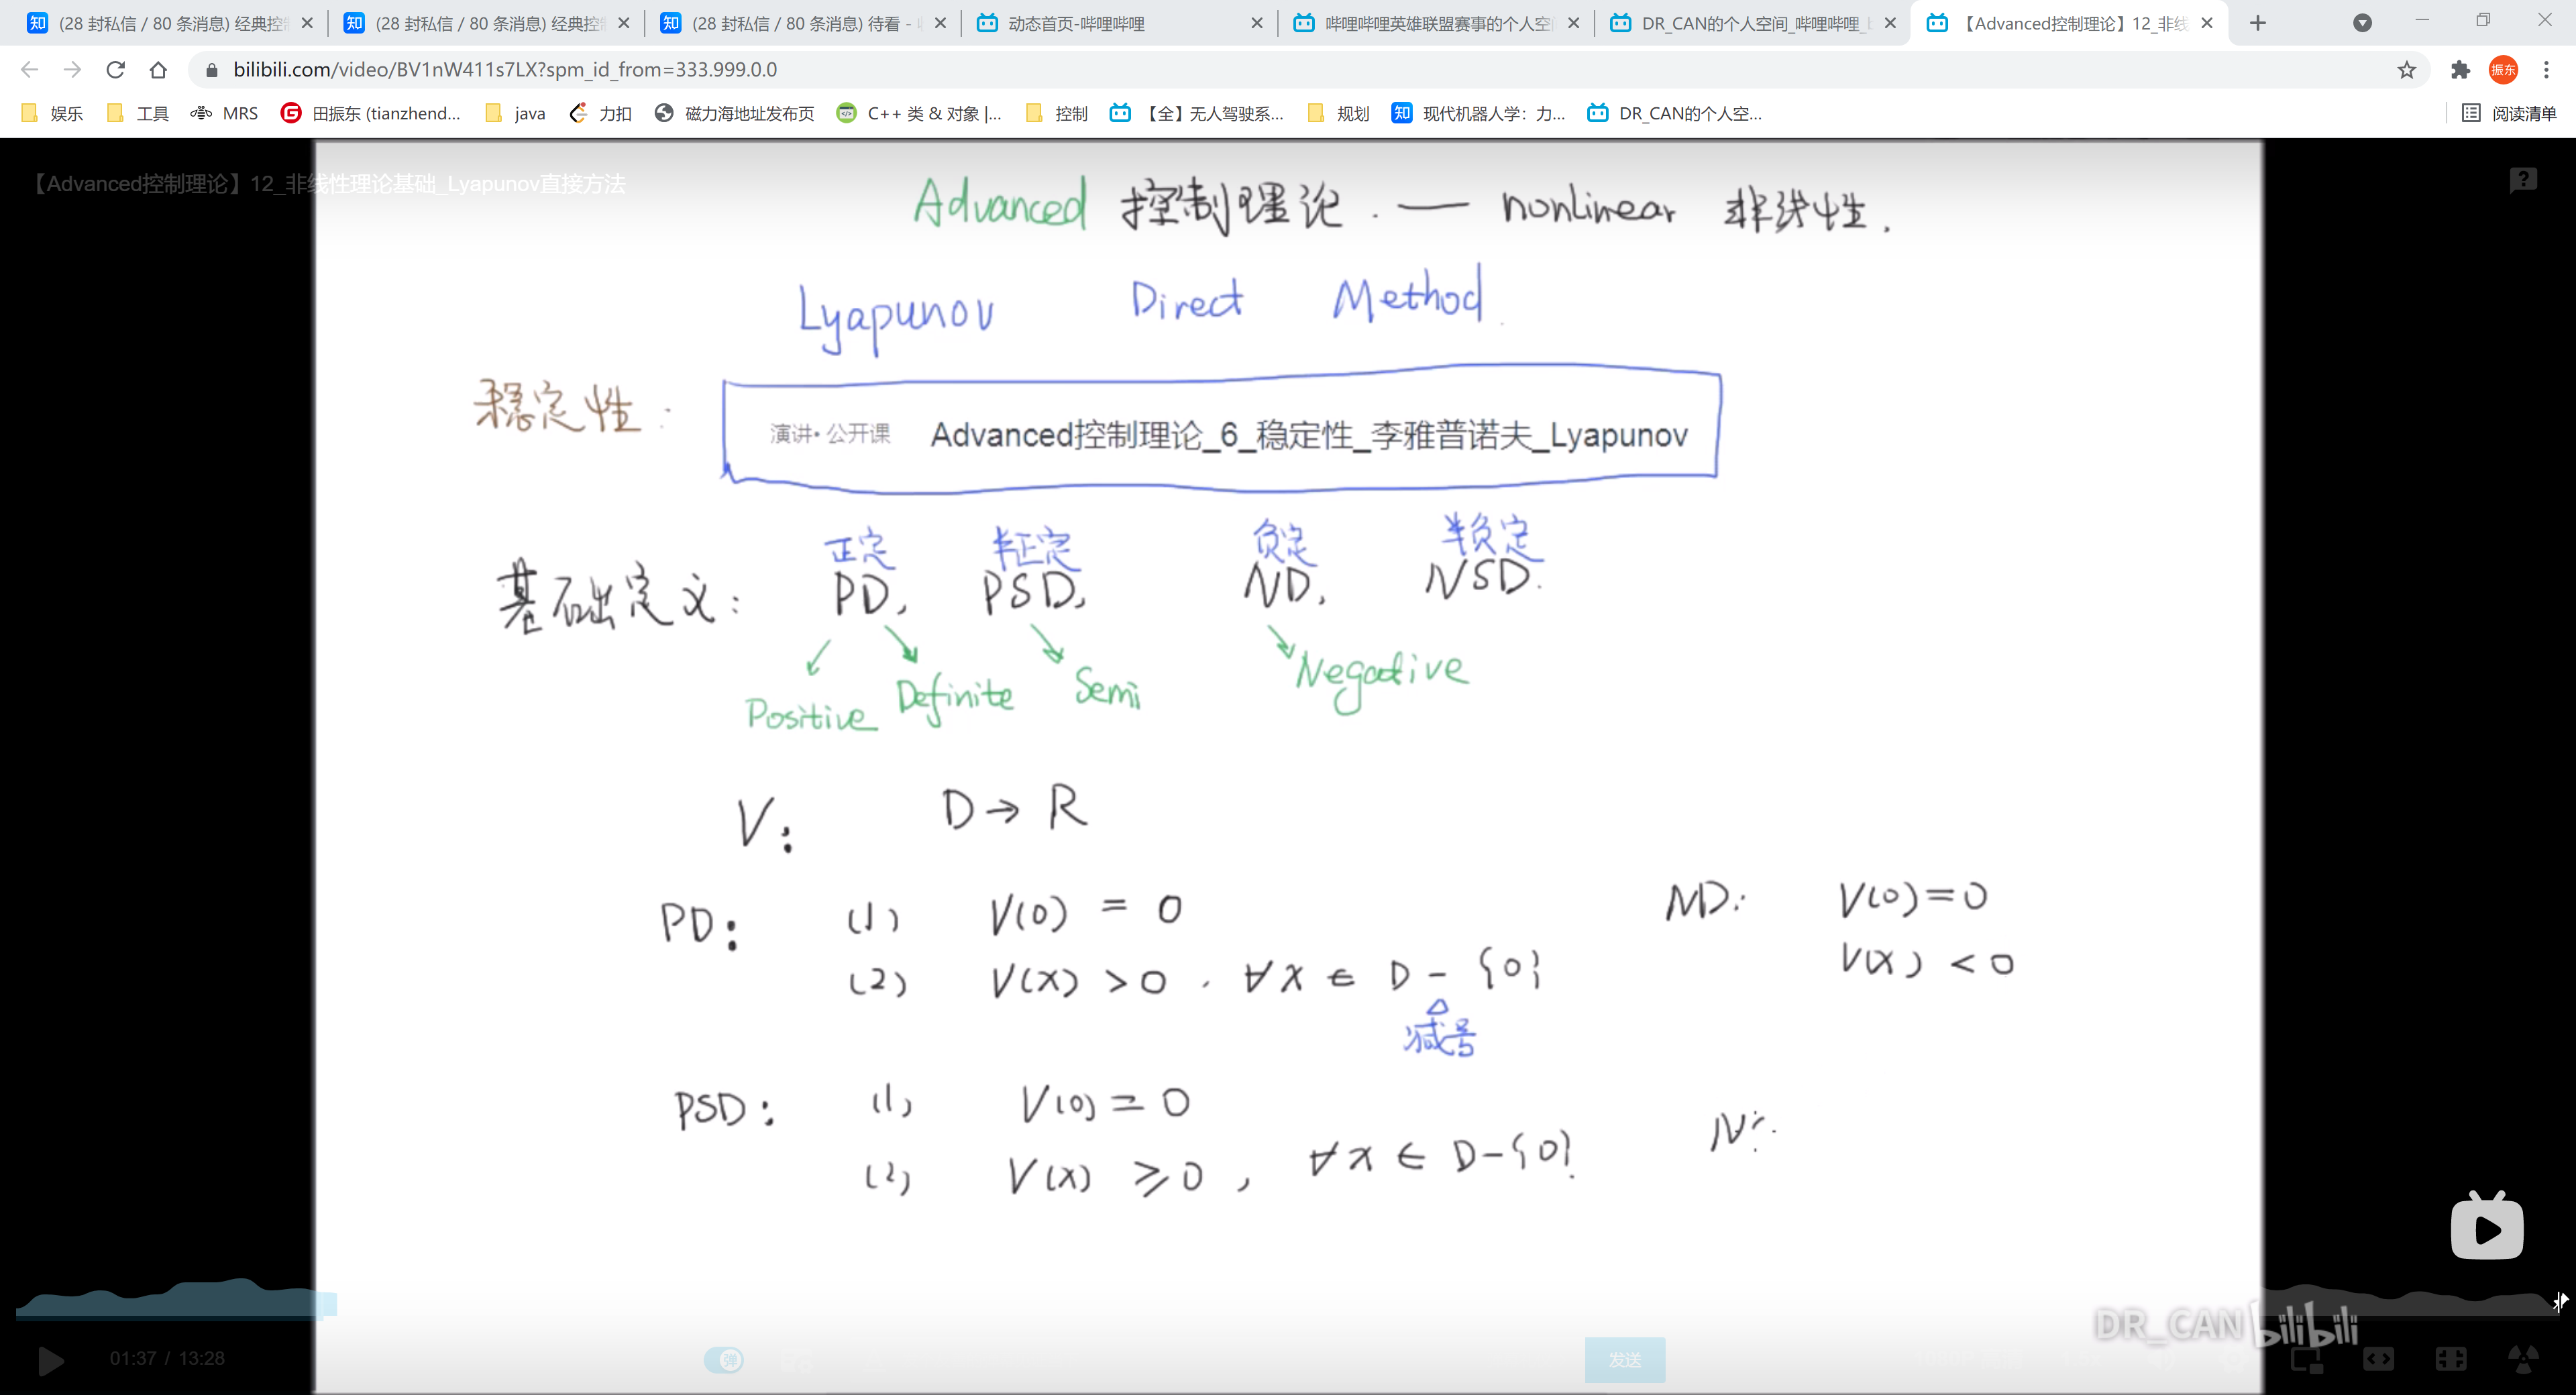 (28 封私信 / 80 条消息) 经典控
(28 封私信 / 80 条消息) 经典控
(28 封私信 / 80 条消息) 待看 -
动态首页-哔哩哔哩
哔哩哔哩英雄联盟赛事的个人空
DR_CAN的个人空间_哔哩哔哩_
【Advanced控制理论】12_非线
bilibili.com/video/BV1nW411s7LX?spm_id_from=333.999.0.0
振东
娱乐 工具 MRS 田振东 (tianzhend... java 力扣 磁力海地址发布页 C++ 类 & 对象 |... 控制 【全】无人驾驶系... 规划 现代机器人学：力... DR_CAN的个人空... 阅读清单
【Advanced控制理论】12_非线性理论基础_Lyapunov直接方法
Advanced 控制理论 . — nonlinear 非线性 .
Lyapunov Direct Method
稳定性 :
演讲• 公开课 Advanced控制理论_6_稳定性_李雅普诺夫_Lyapunov
正定 半正定 负定 半负定
基础定义 : PD, PSD, ND, NSD.
Positive Definite Semi Negative
V: D → R
PD: (1) V(0) = 0
(2) V(x) > 0 , ∀x ∈ D - {0}
减号
ND: V(0) = 0
V(x) < 0
PSD: (1) V(0) = 0
(2) V(x) ⩾ 0 , ∀x ∈ D-{0}
DR_CAN bilibili
01:37 / 13:28
弹
发送